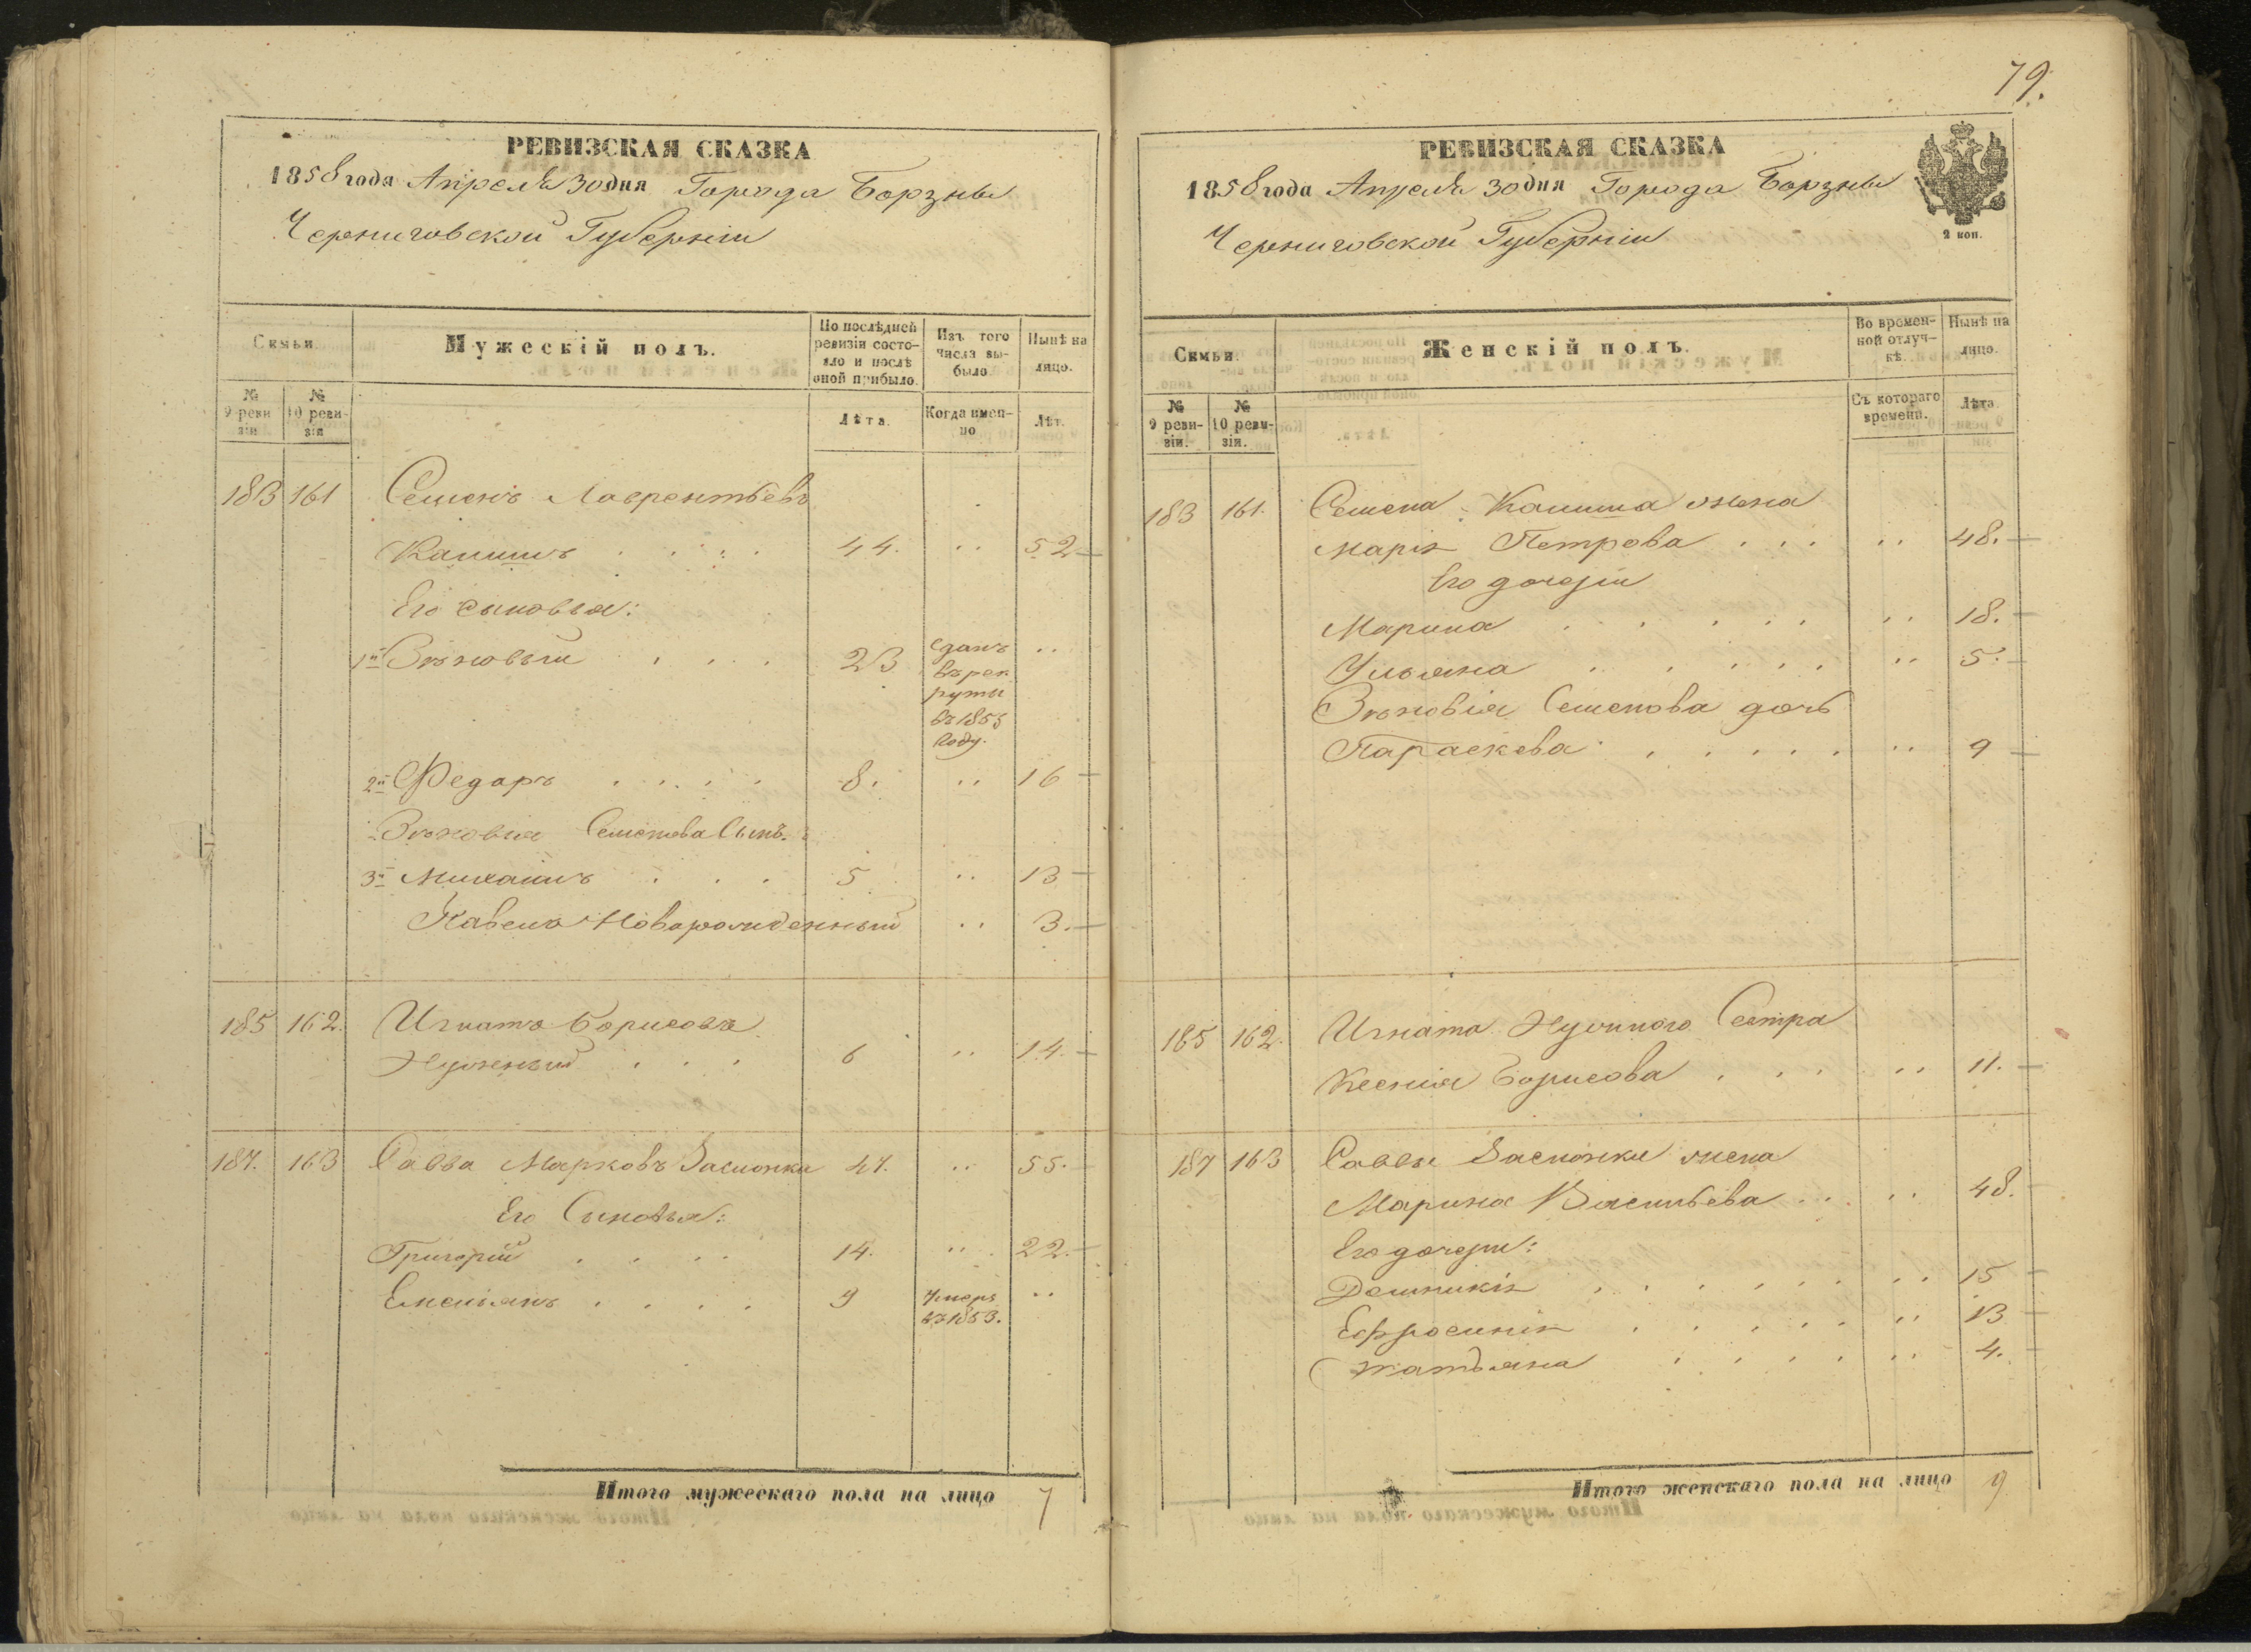 79.
РЕВИЗСКАЯ СКАЗКА
1858 года Апреля 30 дня Города Борзны
Черниговской Губерніи
Семьи.
Мужескій полъ.
По послѣдней ревизіи состояло и послѣ оной прибыло.
Изъ того числа выбыло.
Нынѣ на лицо.
№ 9 ревизіи
№ 10 ревизія
Лѣта.
Когда именно
Лѣт.
183 161 Семенъ Лаврентьевъ
44. .. 52
Его сыновья:
1й Зѣновый . . . . 23 сданъ въ рекруты въ 1855 году. ..
2й Федаръ . . . . . 8. .. 16
Зѣновия Семенова Сынъ
3й Михаилъ . . . 5 .. 13
Павелъ Новорожденный .. 3.
185 162. Игнатъ Борисовъ
Нужный . . . 6 .. 14.
187. 163 Савва Марковъ Заслонка 47. .. 55.
Его Сыновья:
Григорій . . . . 14. .. 22.
Емеліянъ . . . . 9 Умеръ въ 1853. ..
Итого мужескаго пола на лицо 7
РЕВИЗСКАЯ СКАЗКА
1858 года Апреля 30 дня Города Борзны
Черниговской Губерніи
2 коп.
Семьи.
Женскій полъ.
Во временной отлучкѣ.
Нынѣ на лицо.
№ 9 ревизіи.
№ 10 ревизія.
Съ котораго времени.
Лѣта
183 161. Семена жена
Марія Петрова . . . .. 48.
Его дочеріи
Марина . . . . . . .. 18.
Ульяна . . . . . . .. 5.
Зѣновія Семенова дочь
Параскева . . . . . .. 9
185 162. Игната Нужного Сестра
Ксенія Борисова . . . .. 11.
187 163 Саввы Заслонки жена
Марина Васильева . . .. 48.
Его дочери:
Домникія . . . . . . .. 15
Ефросинія . . . . . .. 13
Татьяна . . . . .. 4.
Итого женскаго пола на лицо 9